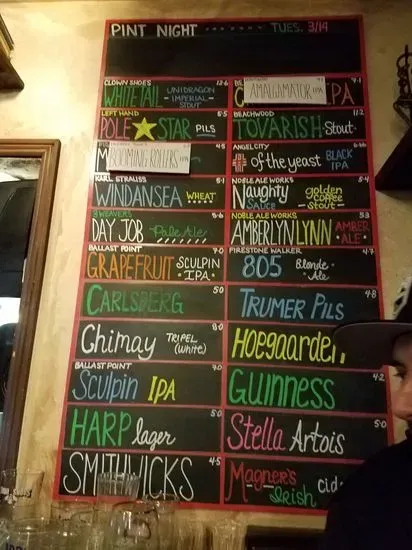 PINT NIGHT ------- TUES. 3/14
CLOWN SHOES 12.6
WHITE TAIL UNIDRAGON
IMPERIAL
STOUT
LEFT HAND 5.5
POLE STAR PILS
4.5
BOOMING ROLLERS
KARL STRAUSS
WINDANSEA WHEAT
3 WEAVERS
DAY JOB Pale Ale
BALLAST POINT 7.0
GRAPEFRUIT SCULPIN
IPA
CARLSBERG 5.0
Chimay TRIPEL
(WHITE) 8.0
BALLAST POINT 7.0
Sculpin IPA
HARP lager 5.0
SMITHWICKS 4.5
7.1
AMALGAMATOR IPA
IPA
BEACHWOOD 11.2
TOVARISH -Stout-
ANGEL CITY
of the yeast BLACK
IPA
NOBLE ALE WORKS
Naughty
Sauce golden
coffee
-Stout-
NOBLE ALE WORKS 5.3
AMBERLYN LYNN AMBER
ALE
FIRESTONE WALKER 4.7
805 Blonde
Ale
TRUMER PILS 4.8
Hoegaarden
GUINNESS 4.2
Stella Artois 5.0
MAGNER'S
Irish Cid